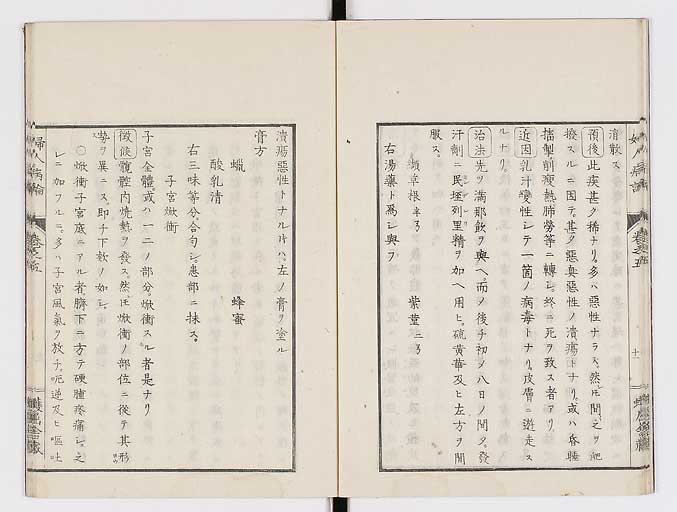 消散ス
預後此疾甚タ稀ナリ。多ハ惡性ナラス。然圧間之ヲ
撥スルニ因テ。甚タ惡臭惡性ノ潰瘍トナリ。或ハ昏睡
搐掣削瘦熱肺勞等ニ轉シ。終ニ死ヲ致ス者アリ
近因乳汁變性シテ一箇ノ病毒トナリ。皮膚ニ遊走ス
ルナリ
治法先ヲ滿那飲ヲ與ヘ。而ノ後チ初ノ八日ノ間タ。發
汗劑ニ民垤列里精ヲ加ヘ用ヒ。硫黄華及ヒ左方ヲ間
服ス。
纈草根 紫菫
右湯藥ト爲シ與フ
婦人病論 卷之五
十一
潰瘍惡性トナル片ハ。左ノ膏ヲ塗ル
膏方
蠟 蜂蜜
酸乳清
右三味等分。合匀シ。患部ニ抹ス。
子宮焮衝
子宮金體。或ハ一二ノ部分。焮衝スル者是ナリ
徴候髖腔内焼熱ヲ發ス。然圧焮衝ノ部位ニ從テ其形
勢ヲ異ニス。即チ下欵ノ如シ
○焮衝子宮底ニアル者。臍下ニ方テ硬腫疼痛シ。之
レニ加フルニ。多ハ子宮風氣ヲ放チ。呃逆及ヒ嘔吐
婦人病論 卷之五